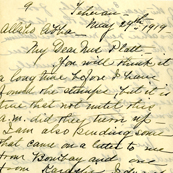 9 Teheran.
May 24th 1919
Allah'o'Abha.
My Dear Mr Platt
You will think it
a long time before I have
found the stamps. Yet it is
true that not until this
a.m. did they turn up
I am also sending some
that came on a letter to me
from Bombay and one
from